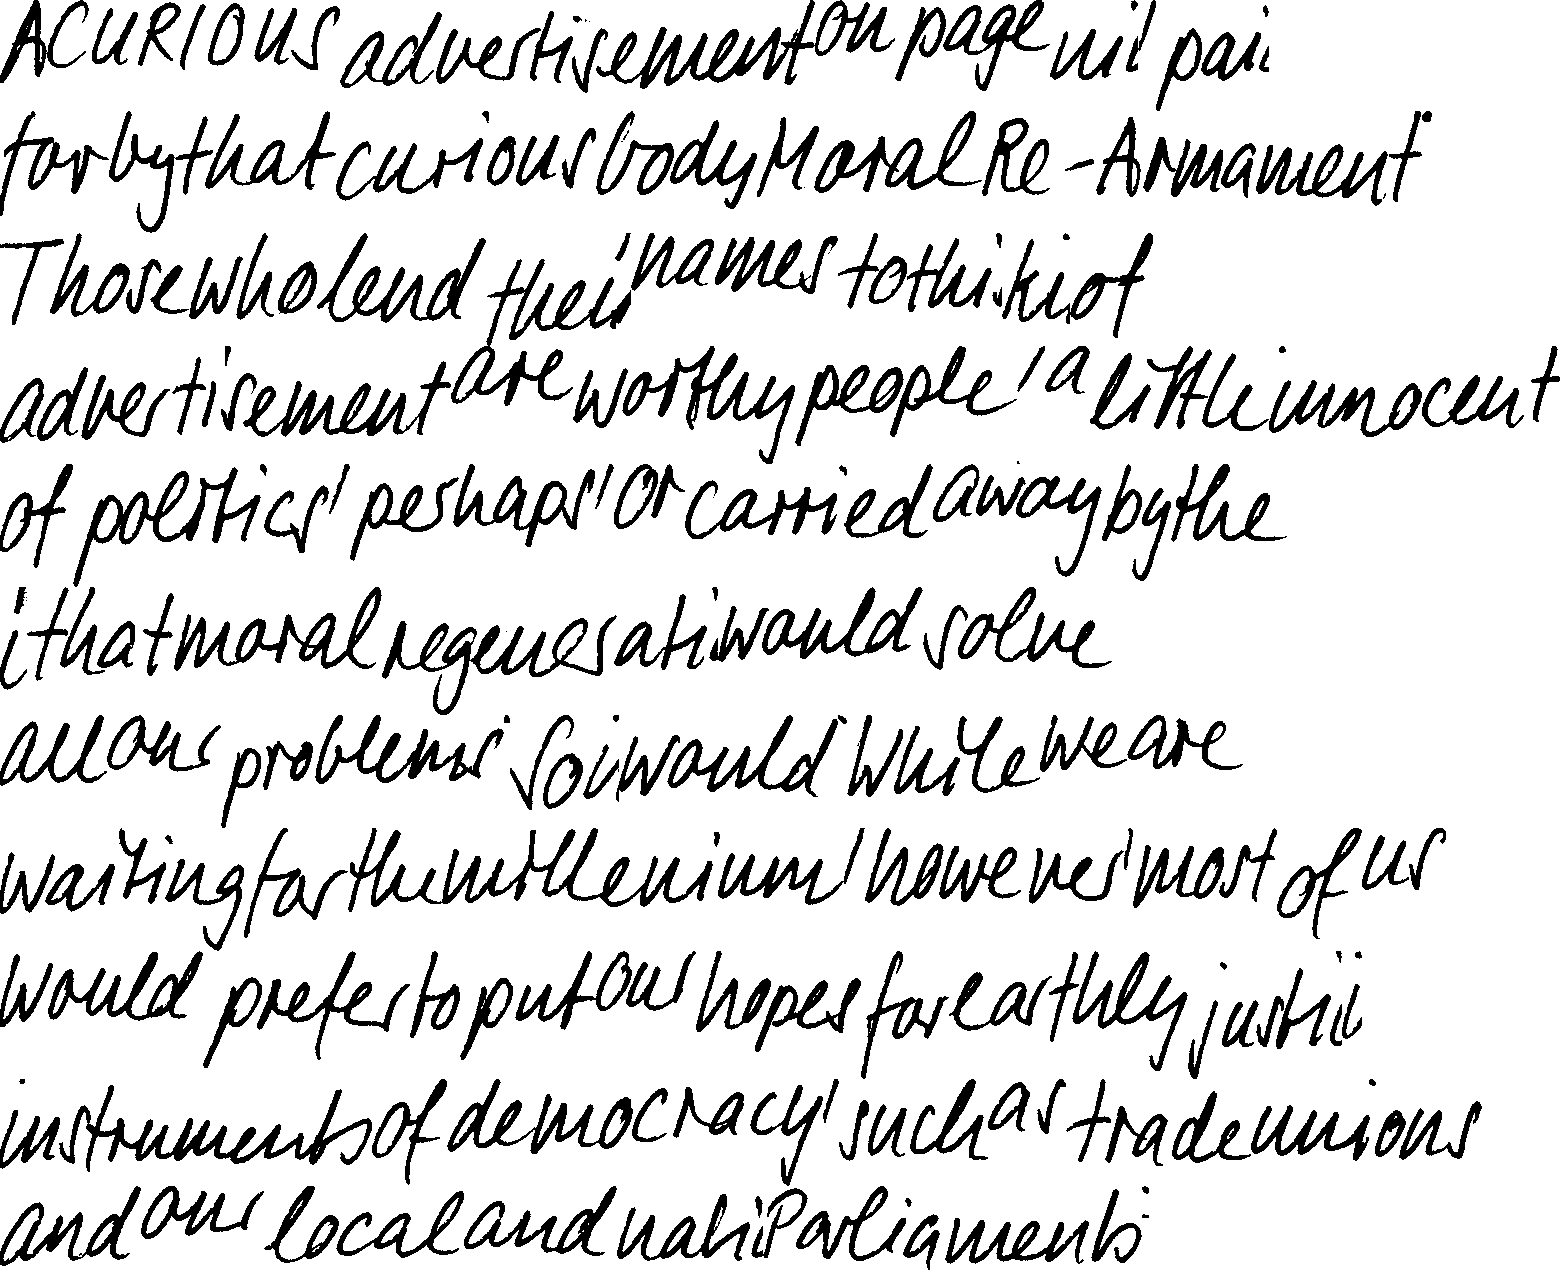 A CURIOUS advertisement on page
for by that curious body Moral Re-Armament.
Those who lend their names to of
advertisement are worthy people, a little innocent
of politics, perhaps, or carried away by the
that moral would solve
all our problems. So would. While we are
waiting for the millenium, however, most of us
would prefer to put our hopes for earthly
instruments of democracy, such as trade unions
and our local and Parliaments.